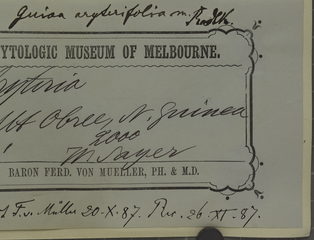 Guioa aryterifolia n. Radlk.
YTOLOGIC MUSEUM OF MELBOURNE.
ryteria
Mt Obree, N. Guinea
2000
W Sayer
BARON FERD. VON MUELLER, PH. & M.D.
F. v. Müller 20-X-87. Rec. 26-XI-87.